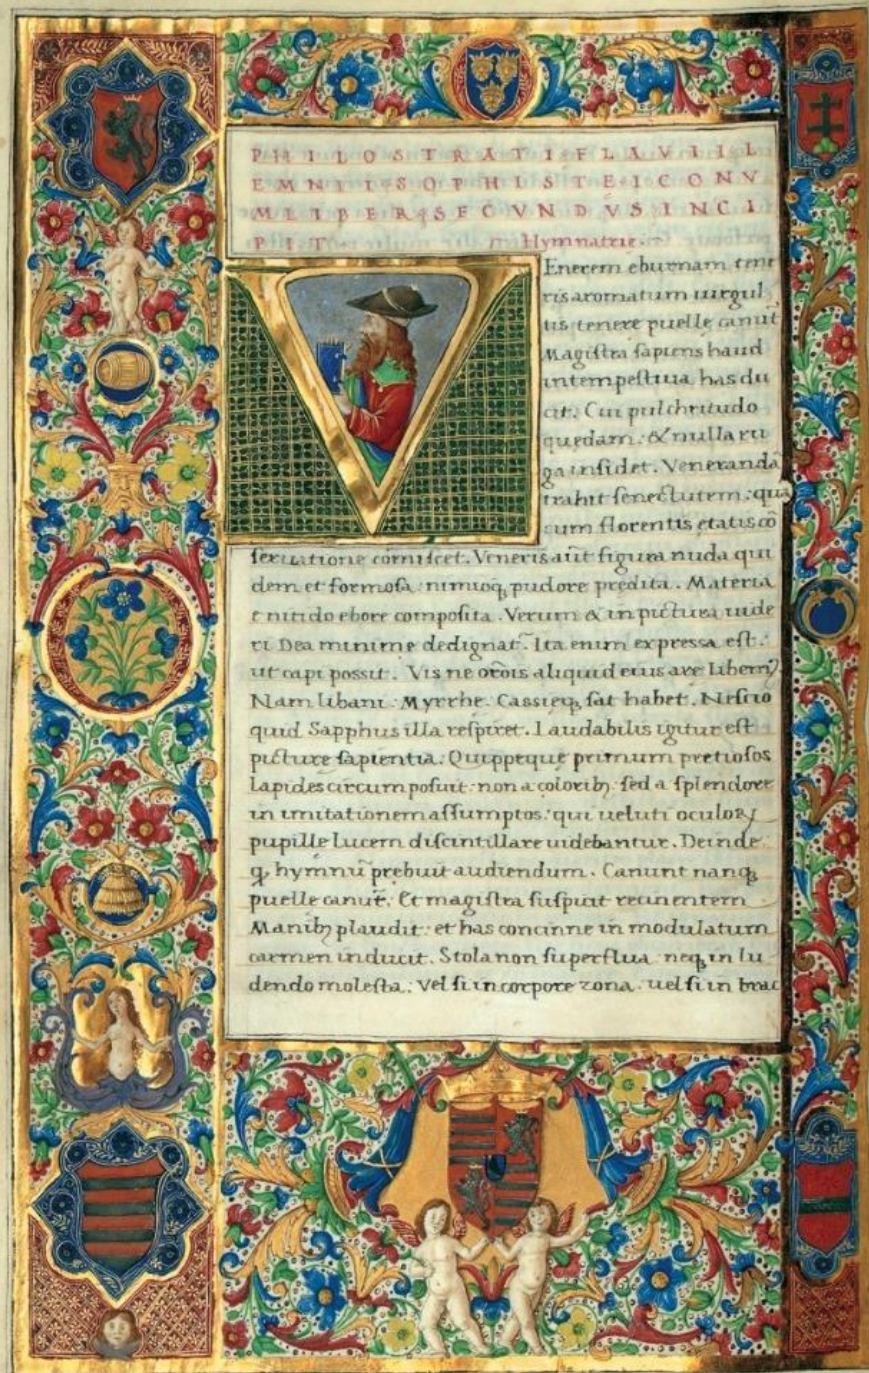 PHILOSTRATI FLAVII L
EMNII SOPHISTE ICONV
M LIBER SECVNDVS INCI
PIT Hymnatrie.
VEnerem eburnam tene
ris aromatum uirgul
tis tenere puelle canūt
Magiſtra ſapiens haud
intempeſtiua has du
cit. Cui pulchritudo
quedam: & nulla ru
ga inſidet. Venerandā
trahit ſenectutem: quā
cum florentis etatis cō
ſeruatione comiſcet. Veneris aūt figura nuda qui
dem et formoſa: nimioq; pudore predita. Materia
e nitido ebore compoſita. Verum & in pictura uide
ri Dea minime dedignat̄. Ita enim expreſſa eſt:
ut capi poſſit. Vis ne or̄ois aliquid eius are
Nam libani: Myrrhe: Caſſieq; ſat habet. Neſcio
quid Sapphus illa reſpiret. Laudabilis igitur eſt
picture ſapientia. Quippeque primum pretioſos
lapides circumpoſuit: non a coloribꝫ: ſed a ſplendore
in imitationem aſſumptos: qui ueluti oculoꝝ
pupille lucem diſcintillare uidebantur. Deinde
q; hymnū prebuit audiendum. Canunt nanq;
puelle canūt. Et magiſtra ſuſpicit recinentem
Manibꝫ plaudit: et has concinne in modulatum
carmen inducit. Stola non ſuperflua: neq; in lu
dendo moleſta: Vel ſi in corpore zona: uel ſi in brac